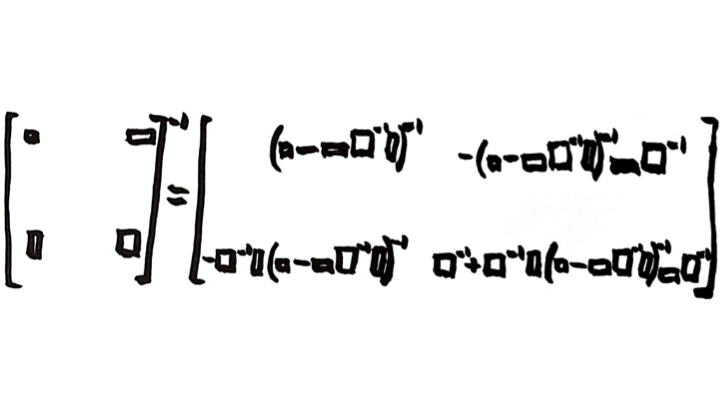 [▫ ▭
▯ □]⁻¹ = [(▫-▭□⁻¹▯)⁻¹ -(▫-▭□⁻¹▯)⁻¹▭□⁻¹
-□⁻¹▯(▫-▭□⁻¹▯)⁻¹ □⁻¹+□⁻¹▯(▫-▭□⁻¹▯)⁻¹▭□⁻¹]